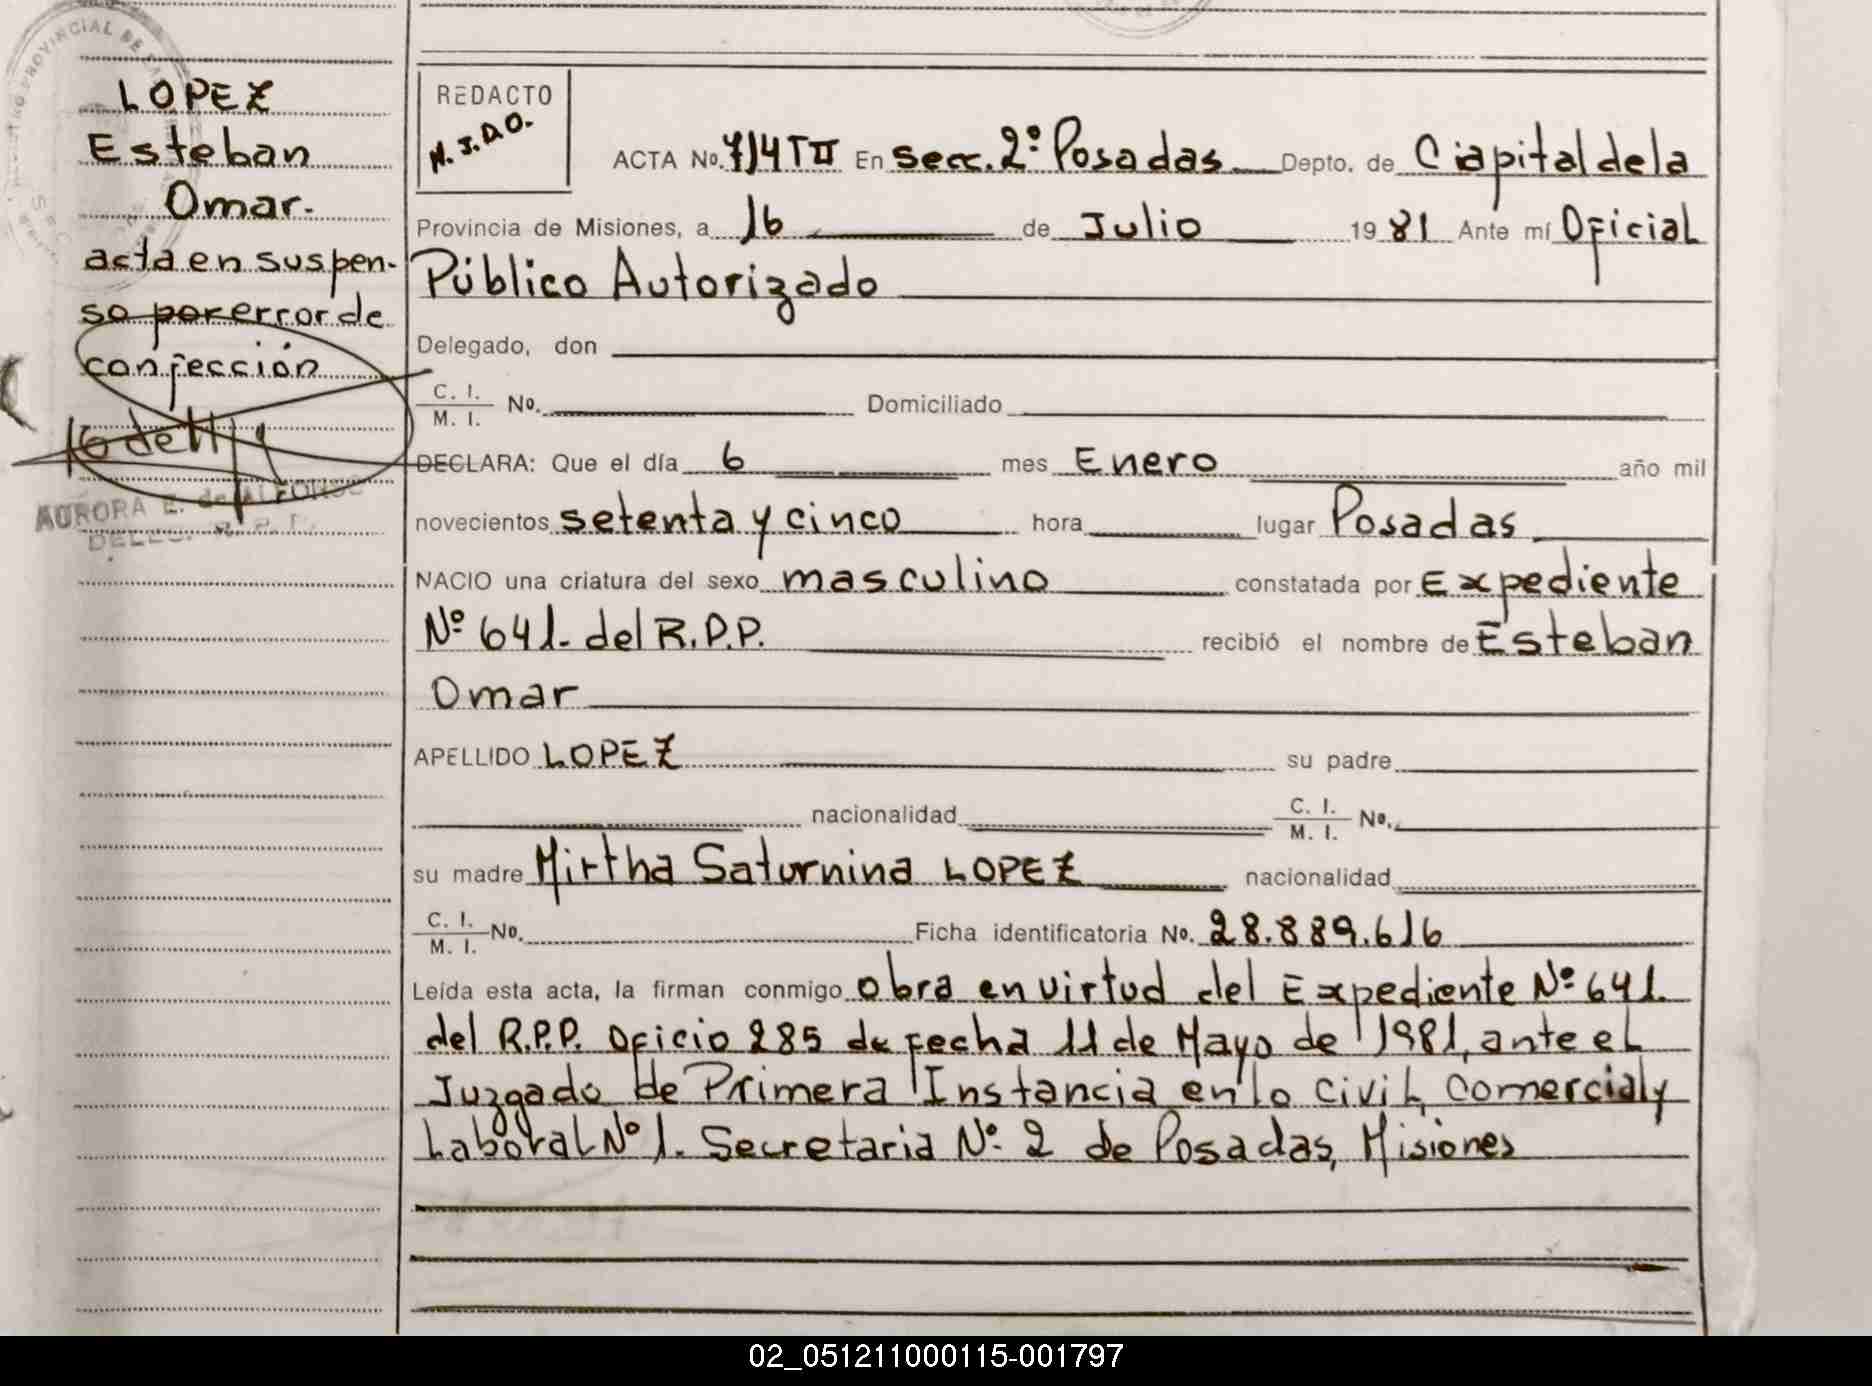 LOPEZ
Esteban
Omar.
acta en suspen-
so por error de
confección
AURORA E. de ALFONSO
REDACTO
M.J.D.O.
ACTA No. 714 T II En secc. 2º Posadas Depto. de Capital de la
Provincia de Misiones, a 16 de Julio 1981 Ante mí Oficial
Público Autorizado
Delegado, don
C. I.
M. I. No. Domiciliado
DECLARA: Que el día 6 mes Enero año mil
novecientos setenta y cinco hora lugar Posadas
NACIO una criatura del sexo masculino constatada por Expediente
Nº 641. del R.P.P. recibió el nombre de Esteban
Omar
APELLIDO LOPEZ su padre
nacionalidad C. I.
M. I. No.
su madre Mirtha Saturnina LOPEZ nacionalidad
C. I.
M. I. No. Ficha identificatoria No. 28.889.616
Leída esta acta, la firman conmigo obra en virtud del Expediente Nº 641.
del R.P.P. Oficio 285 de fecha 11 de Mayo de 1981, ante el
Juzgado de Primera Instancia en lo Civil, Comercial y
Laboral Nº 1. Secretaria Nº 2 de Posadas, Misiones
02_051211000115-001797